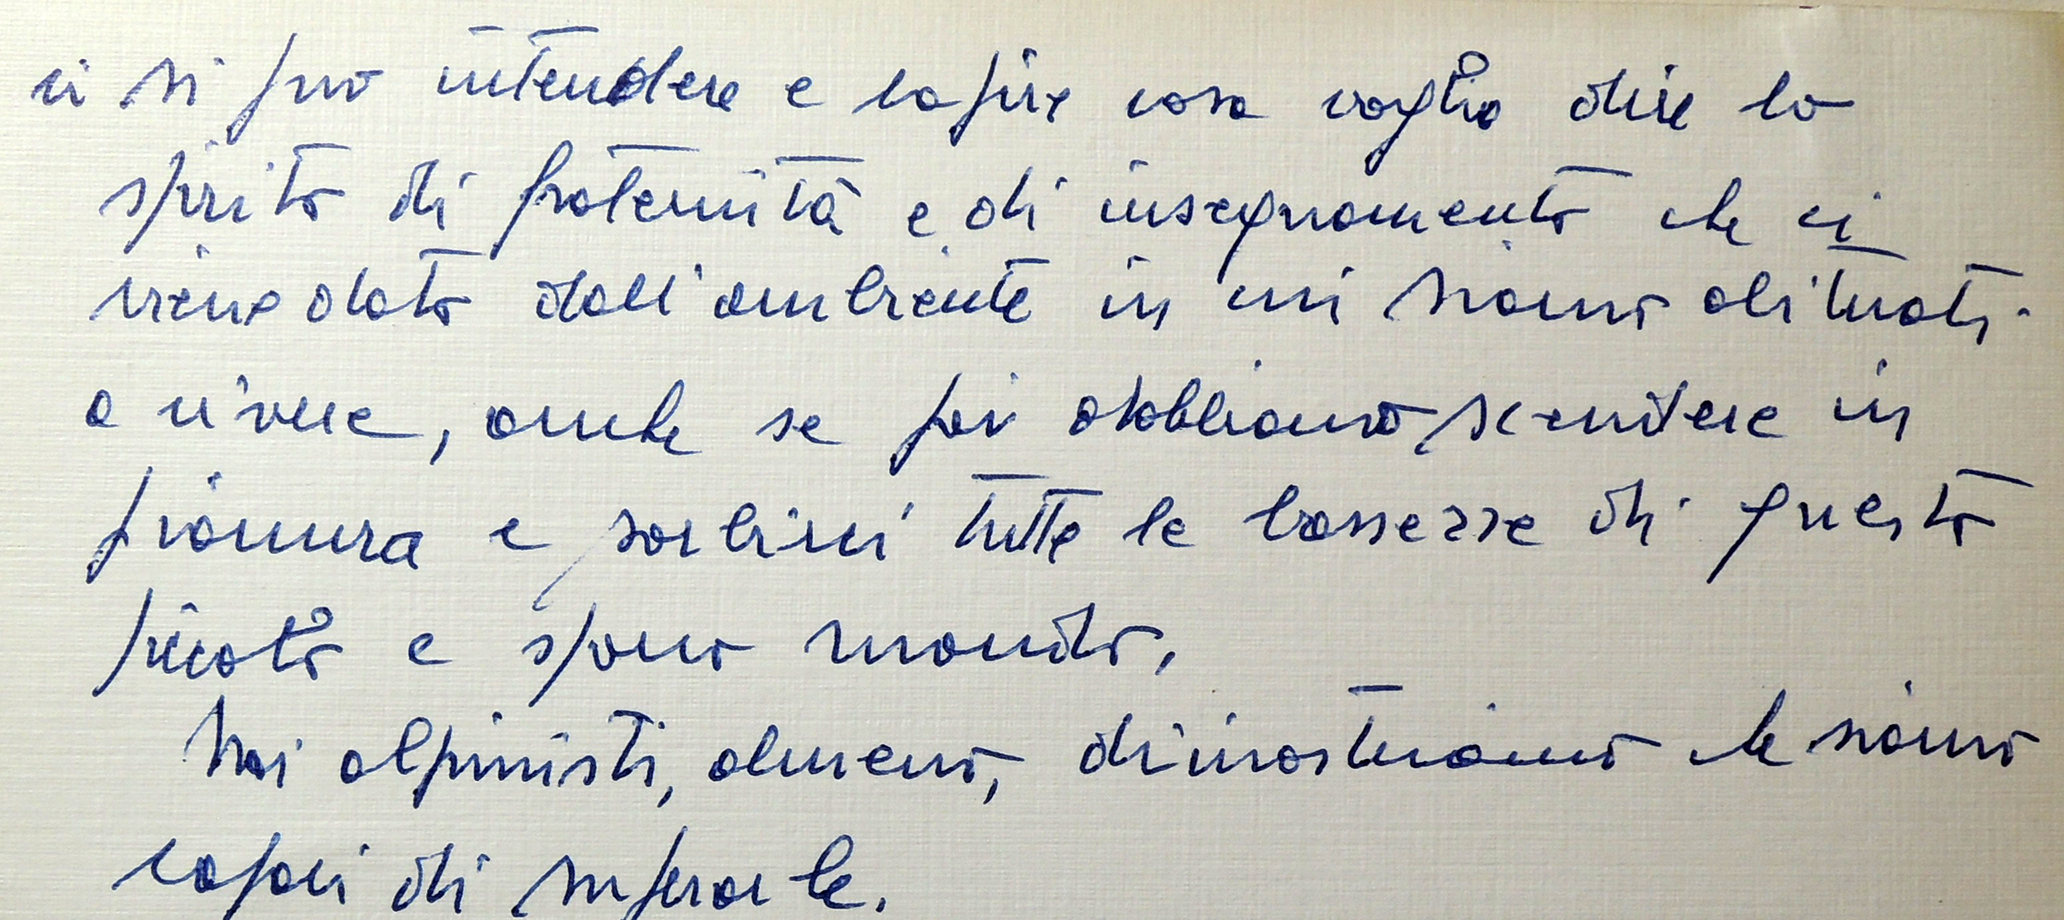 ci si può intendere e capire cosa voglia dire lo
spirito di fraternità e di insegnamento che ci
viene dato dall'ambiente in cui siamo abituati
a vivere, anche se poi dobbiamo scendere in
pianura e sorbirci tutte le bassezze di questo
piccolo e sporco mondo.
Noi alpinisti, almeno, dimostriamo che siamo
capaci di superarle.